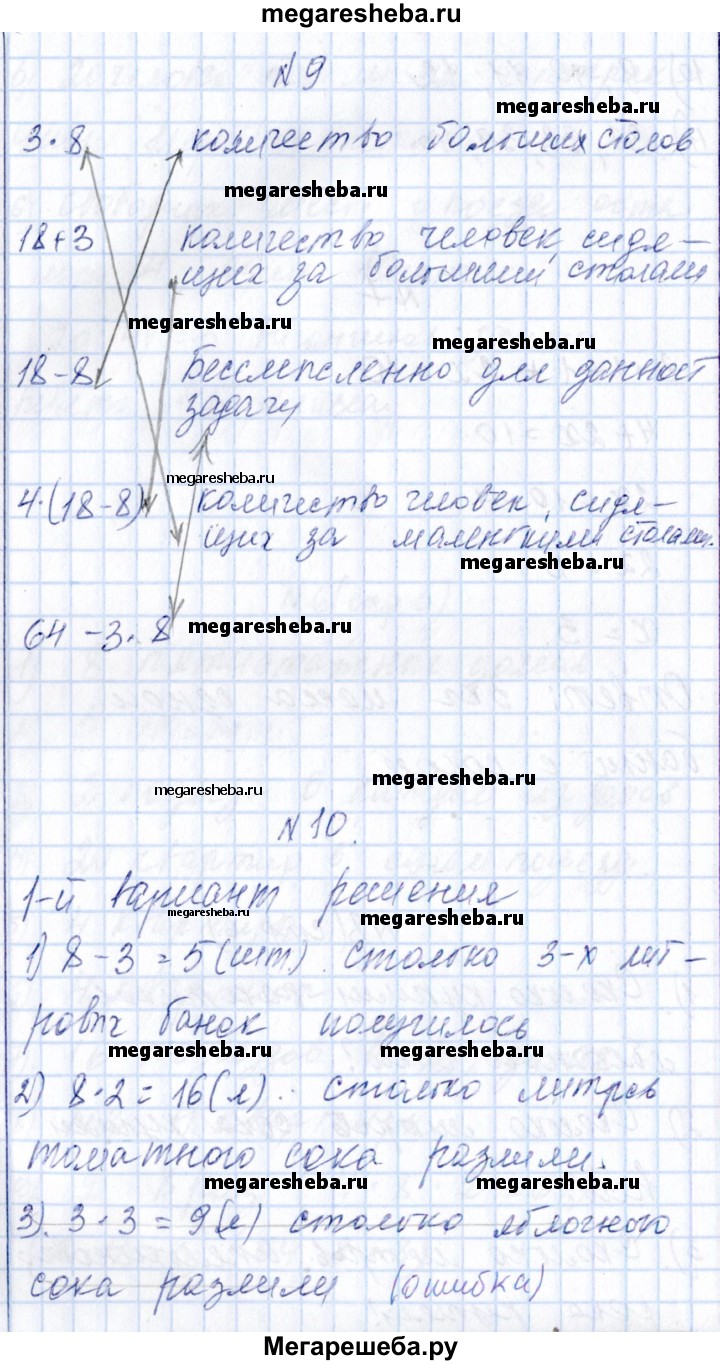 megaresheba.ru
N 9
megaresheba.ru
3·8 количество больших столов
megaresheba.ru
18+3 количество человек, сидя–
щих за большими столами
megaresheba.ru
megaresheba.ru
18-8 Бессмысленно для данной
задачи
megaresheba.ru
4·(18-8) количество человек, сидя–
щих за маленькими столами.
megaresheba.ru
64-3·8
megaresheba.ru
megaresheba.ru
megaresheba.ru
N 10.
1-й вариант решения
megaresheba.ru
megaresheba.ru
1) 8-3=5(шт). столько 3-х лит–
ровых банок получилось
megaresheba.ru
megaresheba.ru
2) 8·2=16(л). столько литров
томатного сока разлили.
megaresheba.ru
megaresheba.ru
3). 3·3=9(л) столько яблочного
сока разлили (ошибка)
Мегарешеба.ру